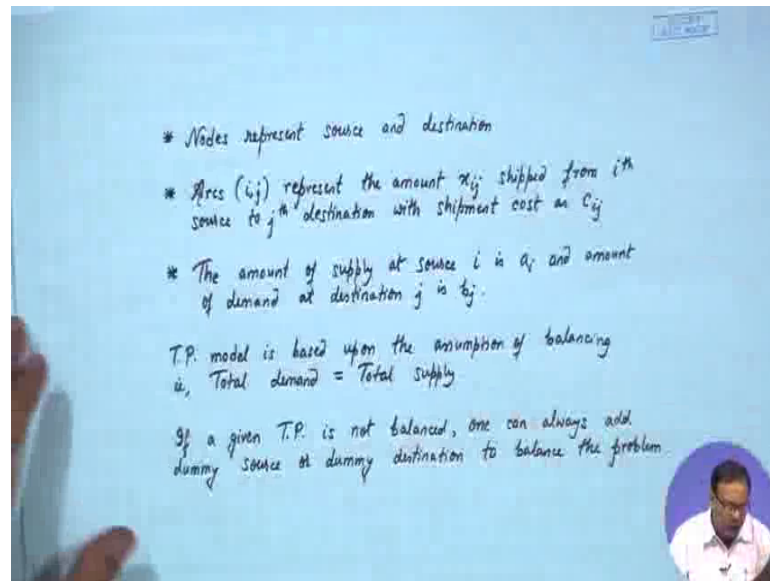 * Nodes represent source and destination
* Arcs (i,j) represent the amount xij shipped from ith
source to jth destination with shipment cost as Cij
* The amount of supply at source i is ai and amount
of demand at destination j is bj.
T.P. model is based upon the assumption of balancing
ie, Total demand = Total supply
If a given T.P. is not balanced, one can always add
dummy source or dummy destination to balance the problem.